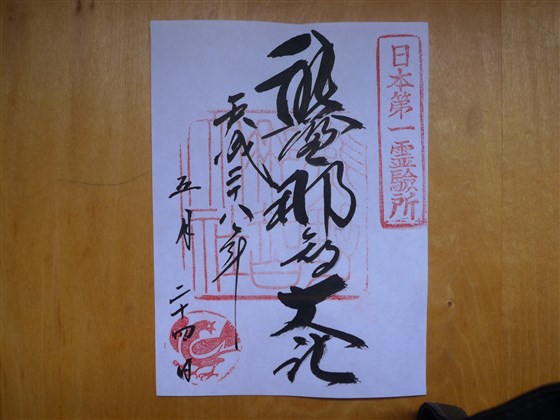 日本第一霊驗所
熊野那智大社
平成二十八年
五月二十四日